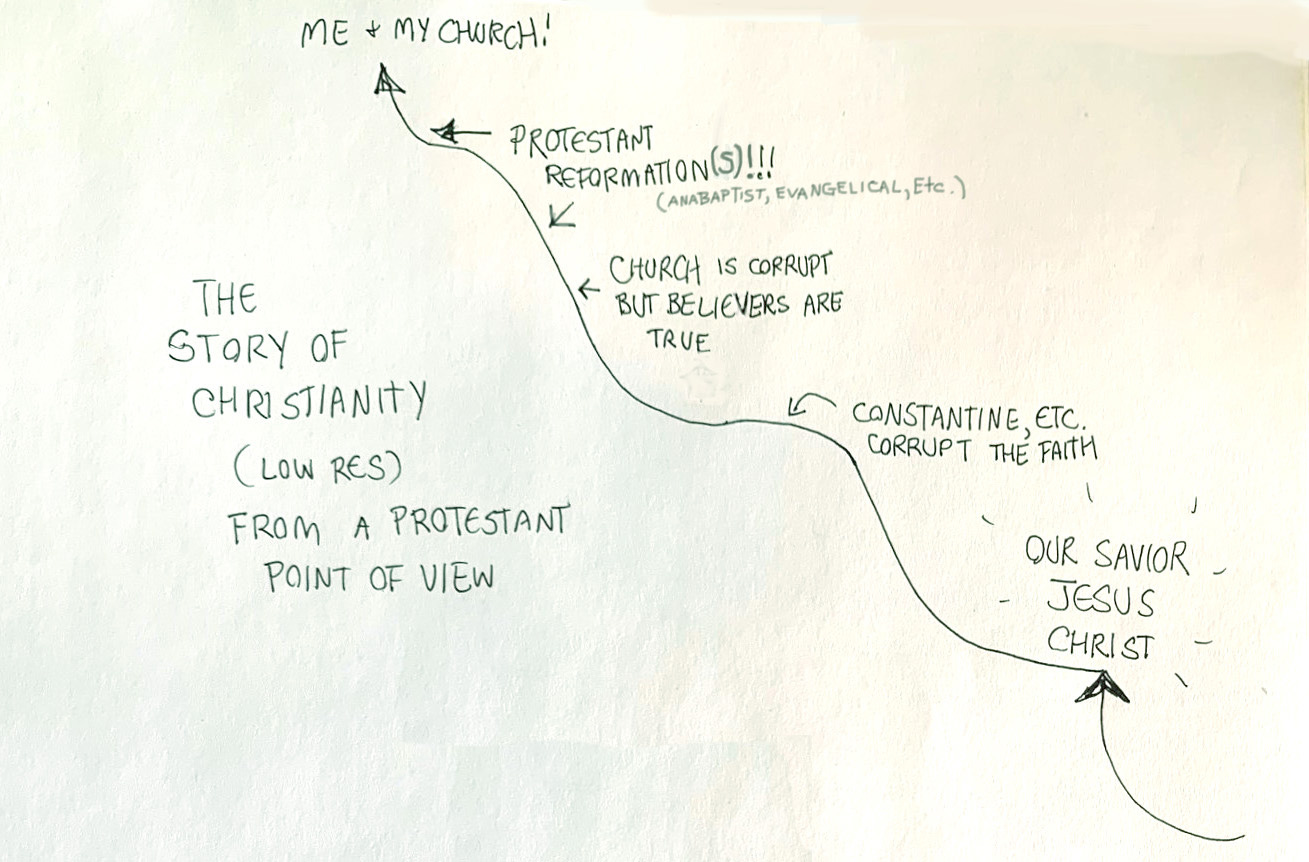 ME + MY CHURCH!
PROTESTANT
REFORMATION(S)!!!
(ANABAPTIST, EVANGELICAL, Etc.)
CHURCH IS CORRUPT
BUT BELIEVERS ARE
TRUE
THE
STORY OF
CHRISTIANITY
(LOW RES)
FROM A PROTESTANT
POINT OF VIEW
CONSTANTINE, ETC.
CORRUPT THE FAITH
OUR SAVIOR
JESUS
CHRIST